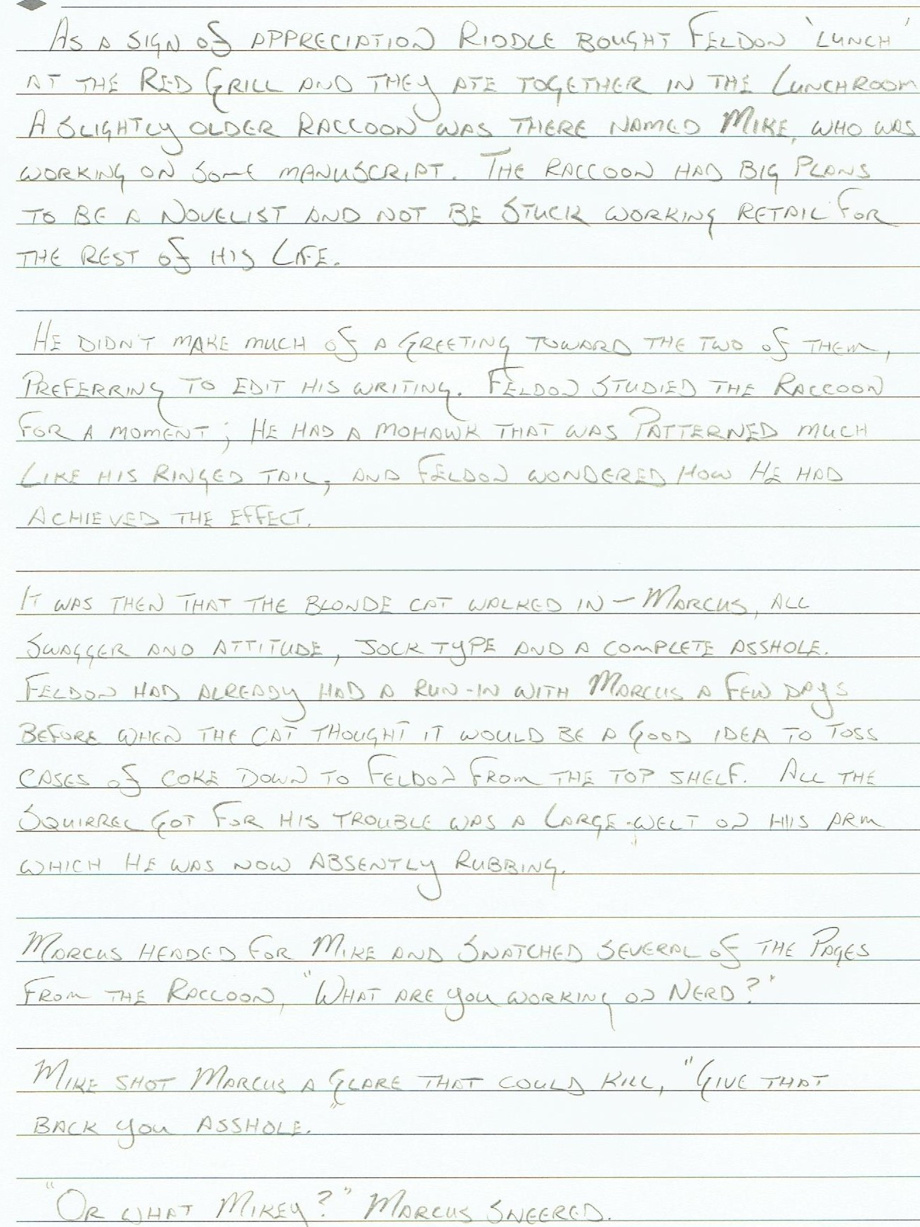 As a sign of appreciation Riddle bought Feldon 'lunch'
at the Red Grill and they ate together in the lunchroom
A slightly older raccoon was there named Mike, who was
working on some manuscript. The raccoon had big plans
to be a novelist and not be stuck working retail for
the rest of his life.

He didn't make much of a greeting toward the two of them,
preferring to edit his writing. Feldon studied the raccoon
for a moment; he had a mohawk that was patterned much
like his ringed tail, and Feldon wondered how he had
achieved the effect.

It was then that the blonde cat walked in – Marcus, all
swagger and attitude, jock type and a complete asshole.
Feldon had already had a run-in with Marcus a few days
before when the cat thought it would be a good idea to toss
cases of Coke down to Feldon from the top shelf. All the
squirrel got for his trouble was a large welt on his arm
which he was now absently rubbing.

Marcus headed for Mike and snatched several of the pages
from the raccoon, "What are you working on nerd?"

Mike shot Marcus a glare that could kill, "Give that
back you asshole."

"Or what Mikey?" Marcus sneered.